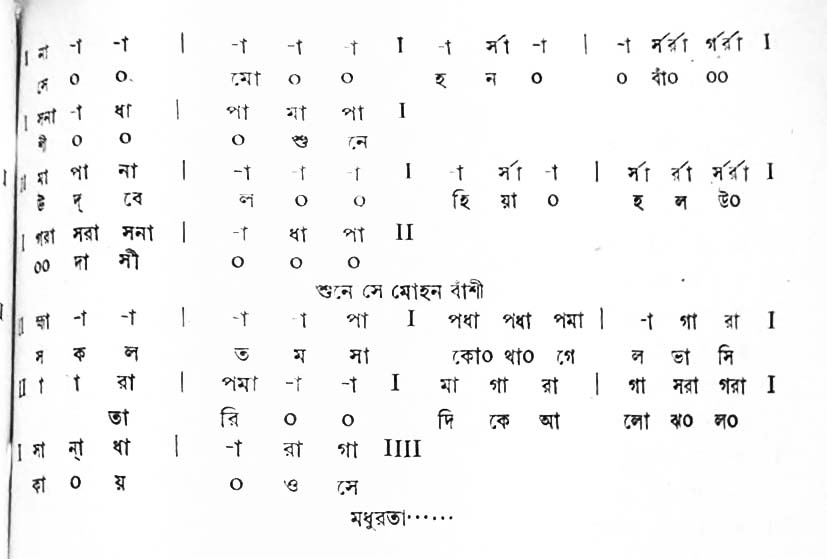 I না -া -া | -া -া -া I -া র্সা -া | -া র্সর্রা র্গর্রা I
সে ০ ০ মো ০ ০ হ ন ০ ০ বাঁ০ ০০
I র্সনা -া ধা | পা মা পা I
শী ০ ০ ০ শু নে
II মা পা না | -া -া -া I -া র্সা -া | র্সা র্রা র্সর্রা I
উ দ্ বে ল ০ ০ হি য়া ০ হ ল উ০
I গরা সরা সনা | -া ধা পা II
০০ দা সী ০ ০ ০
শুনে সে মোহন বাঁশী
II জ্ঞা -া -া | -া -া পা I পধা পধা পমা | -া গা রা I
স ক ল ত ম সা কো০ থা০ গে ল ভা সি
II া া রা | পমা -া -া I মা গা রা | গা সরা গরা I
তা রি ০ ০ দি কে আ লো ঝ০ ল০
I সা ন্‌া ধা | -া রা গা IIII
কা ০ য় ০ ও সে
মধুরতা······